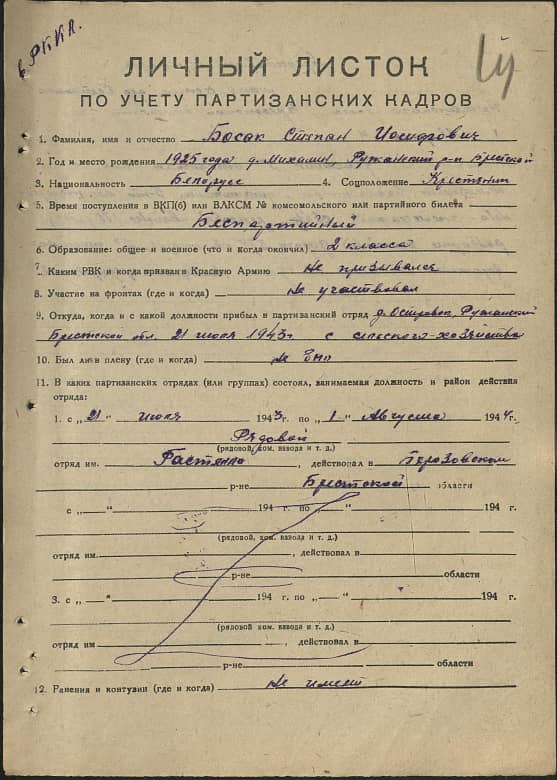 в РККА.
14
ЛИЧНЫЙ ЛИСТОК
ПО УЧЕТУ ПАРТИЗАНСКИХ КАДРОВ
1. Фамилия, имя и отчество Босак Степан Иосифович
2. Год и место рождения 1925 года д. Михалин, Ружанский р-н Брестской
3. Национальность Белорусс 4. Соцположение Крестьянин
5. Время поступления в ВКП(б) или ВЛКСМ № комсомольского или партийного билета
Беспартийный
6. Образование: общее и военное (что и когда окончил) 2 класса
7. Каким РВК и когда призван в Красную Армию Не призывался
8. Участие на фронтах (где и когда) Не участвовал
9. Откуда, когда и с какой должности прибыл в партизанский отряд д. Островок, Ружанский
Брестской обл. 21 июля 1943 г с сельского-хозяйства
10. Был ли в плену (где и когда) не был
11. В каких партизанских отрядах (или группах) состоял, занимаемая должность и район действия
отряда:
1. с „21" июля 1943 г. по „1" Августа 1944 г.
Рядовой
(рядовой, ком. взвода и т. д.)
отряд им. Гастелло, действовал в Березовском
р-не Брестской области
с „ " 194 г. по „ " 194 г.
(рядовой, ком. взвода и т. д.)
отряд им. , действовал в
р-не области
3. с „ " 194 г. по „ " 194 г.
(рядовой ком. взвода и т. д.)
отряд им , действовал в
р-не области
12. Ранения и контузии (где и когда) Не имеет